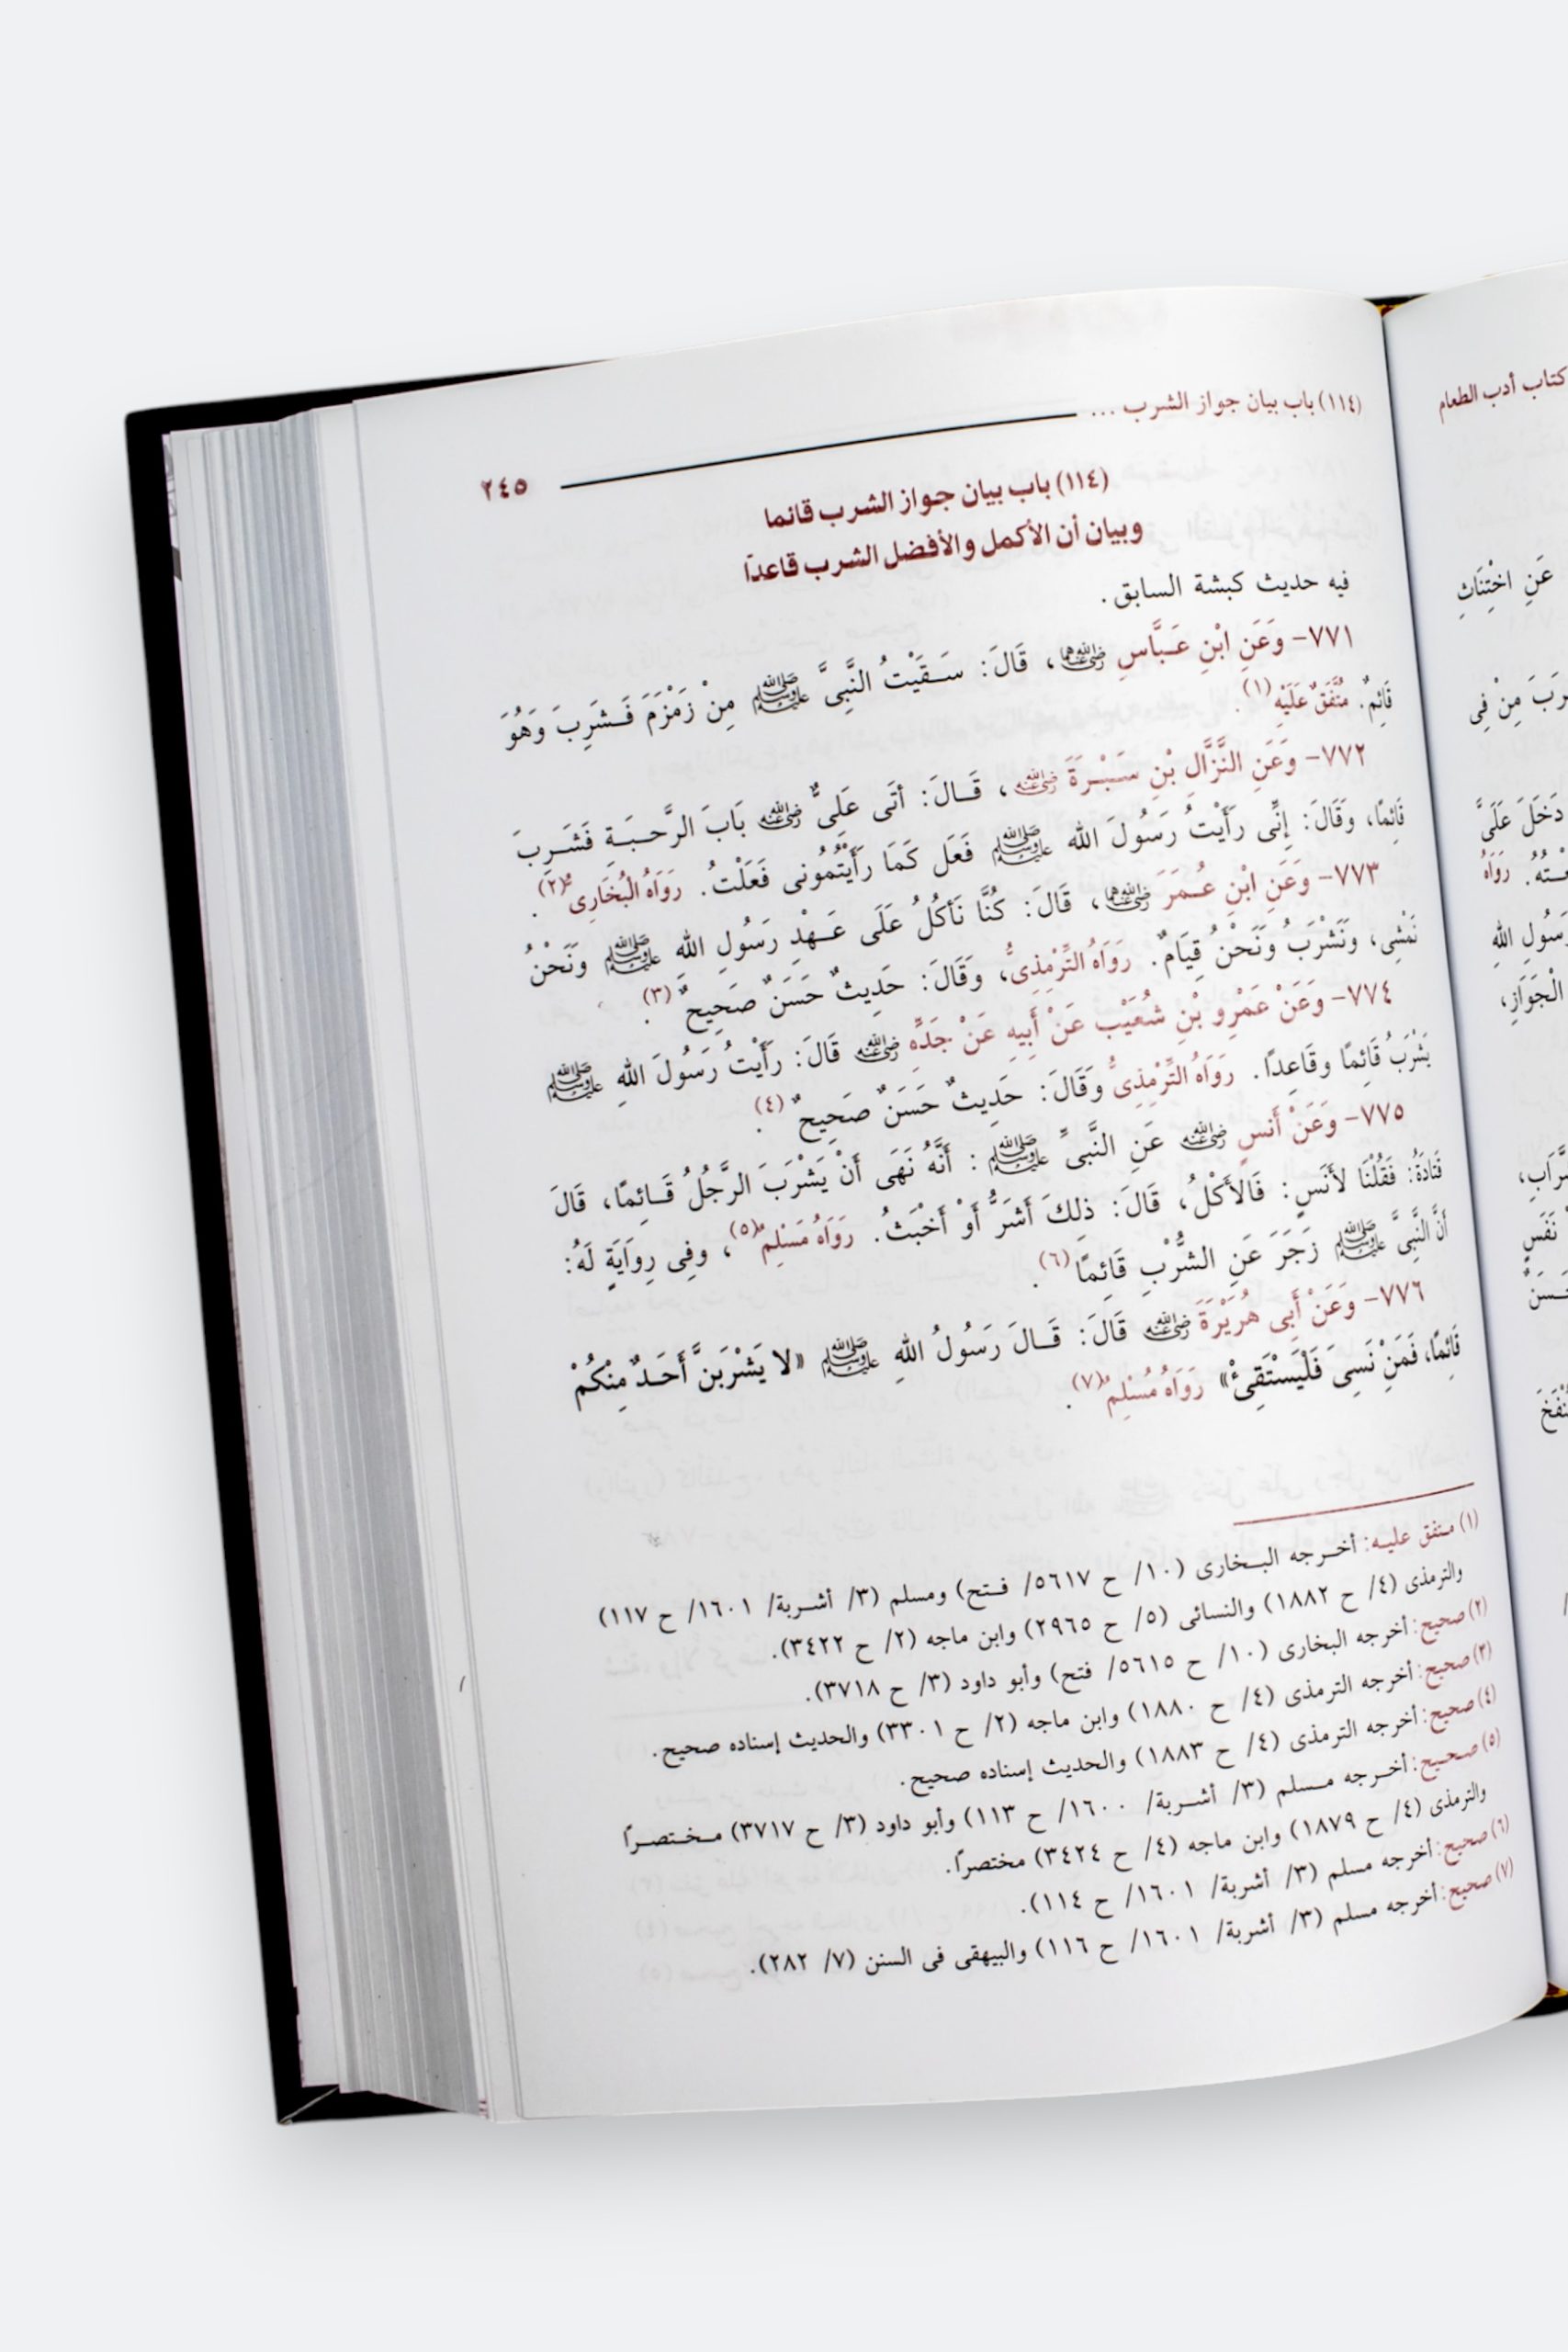 (١١٤) باب بيان جواز الشرب ...
٢٤٥
(١١٤) باب بيان جواز الشرب قائما
وبيان أن الأكمل والأفضل الشرب قاعدًا
فيه حديث كبشة السابق .
٧٧١- وَعَنِ ابْنِ عَبَّاسٍ رضي الله عنهما، قَالَ: سَقَيْتُ النَّبِىَّ ﷺ مِنْ زَمْزَمَ فَشَرِبَ وَهُوَ
قَائِمٌ. مُتَّفَقٌ عَلَيْهِ(١).
٧٧٢- وَعَنِ النَّزَّالِ بْنِ سَبْرَةَ رضي الله عنه، قَالَ: أتَى عَلِىٌّ رضي الله عنه بَابَ الرَّحبَةِ فَشَرِبَ
قَائِمًا، وَقَالَ: إِنِّى رَأَيْتُ رَسُولَ الله ﷺ فَعَل كَمَا رَأَيْتُمُونى فَعَلْتُ. رَوَاهُ الْبُخَارِىُّ(٢).
٧٧٣- وَعَنِ ابْنِ عُمَرَ رضي الله عنهما، قَالَ: كُنَّا نَأكُلُ عَلَى عَهْدِ رَسُولِ الله ﷺ وَنَحْنُ
نَمْشِى، وَنَشْرَبُ وَنَحْنُ قِيَامٌ. رَوَاهُ التِّرْمِذِىُّ، وَقَالَ: حَدِيثٌ حَسَنٌ صَحِيحٌ(٣).
٧٧٤- وَعَنْ عَمْرِو بْنِ شُعَيْب عَنْ أَبِيهِ عَنْ جَدِّهِ رضي الله عنه قَالَ: رَأَيْتُ رَسُولَ اللهِ ﷺ
يَشْرَبُ قَائِمًا وقَاعِدًا. رَوَاهُ التِّرْمِذِىُّ وَقَالَ: حَدِيثٌ حَسَنٌ صَحِيحٌ(٤).
٧٧٥- وَعَنْ أَنسٍ رضي الله عنه عَنِ النَّبىِّ ﷺ : أَنَّهُ نَهَى أَنْ يَشْرَبَ الرَّجُلُ قَائِمًا، قَالَ
قَتَادَةُ: فَقُلْنَا لأَنَسٍ: فَالأَكْلُ، قَالَ: ذلِكَ أَشَرُّ أَوْ أَخْبَثُ. رَوَاهُ مُسْلِمٌ(٥)، وفِى رِوَايَةٍ لَهُ:
أَنَّ النَّبِىَّ ﷺ زَجَرَ عَنِ الشُّرْبِ قَائِمًا(٦).
٧٧٦- وَعَنْ أَبِى هُرَيْرَةَ رضي الله عنه قَالَ: قَالَ رَسُولُ اللهِ ﷺ «لا يَشْرَبَنَّ أَحَدٌ مِنْكُمْ
قَائِمًا، فَمَنْ نَسِىَ فَلْيَسْتَقِئْ» رَوَاهُ مُسْلِمٌ(٧).
(١) متفق عليه: أخرجه البخارى (١٠/ ح ٥٦١٧/ فتح) ومسلم (٣/ أشربة/ ١٦٠١/ ح ١١٧)
والترمذى (٤/ ح ١٨٨٢) والنسائى (٥/ ح ٢٩٦٥) وابن ماجه (٢/ ح ٣٤٢٢).
(٢) صحيح: أخرجه البخارى (١٠/ ح ٥٦١٥/ فتح) وأبو داود (٣/ ح ٣٧١٨).
(٣) صحيح: أخرجه الترمذى (٤/ ح ١٨٨٠) وابن ماجه (٢/ ح ٣٣٠١) والحديث إسناده صحيح.
(٤) صحيح: أخرجه الترمذى (٤/ ح ١٨٨٣) والحديث إسناده صحيح.
(٥) صحيح: أخرجه مسلم (٣/ أشربة/ ١٦٠٠/ ح ١١٣) وأبو داود (٣/ ح ٣٧١٧) مختصرًا
والترمذى (٤/ ح ١٨٧٩) وابن ماجه (٤/ ح ٣٤٢٤) مختصرًا.
(٦) صحيح: أخرجه مسلم (٣/ أشربة/ ١٦٠١/ ح ١١٤).
(٧) صحيح: أخرجه مسلم (٣/ أشربة/ ١٦٠١/ ح ١١٦) والبيهقى فى السنن (٧/ ٢٨٢).
كتاب أدب الطعام
عَنِ اخْتِنَاثِ
مِنْ فِى
دَخَلَ عَلَىَّ
رَوَاهُ
الْجَوَازِ،
نَفَسٍ